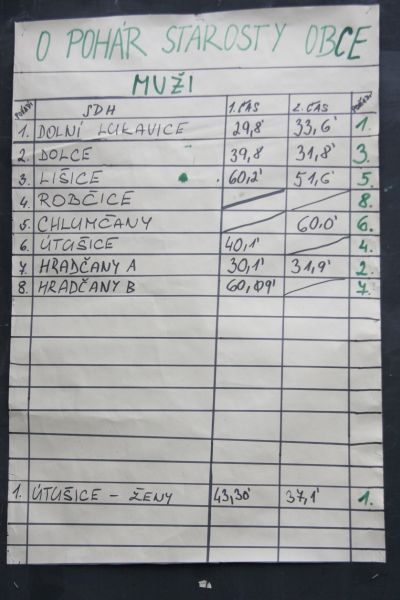 O POHÁR STAROSTY OBCE
MUŽI
SDH 1. ČAS 2. ČAS
1. DOLNÍ LUKAVICE 29,8' 33,6' 1.
2. DOLCE 39,8 31,8' 3.
3. LIŠICE 60,2' 51,6' 5.
4. ROBČICE 8.
5. CHLUMČANY 60,0' 6.
6. ÚTUŠICE 40,1' 4.
7. HRADČANY A 30,1' 31,9' 2.
8. HRADČANY B 60,09' 7.
1. ÚTUŠICE - ŽENY 43,30' 37,1' 1.